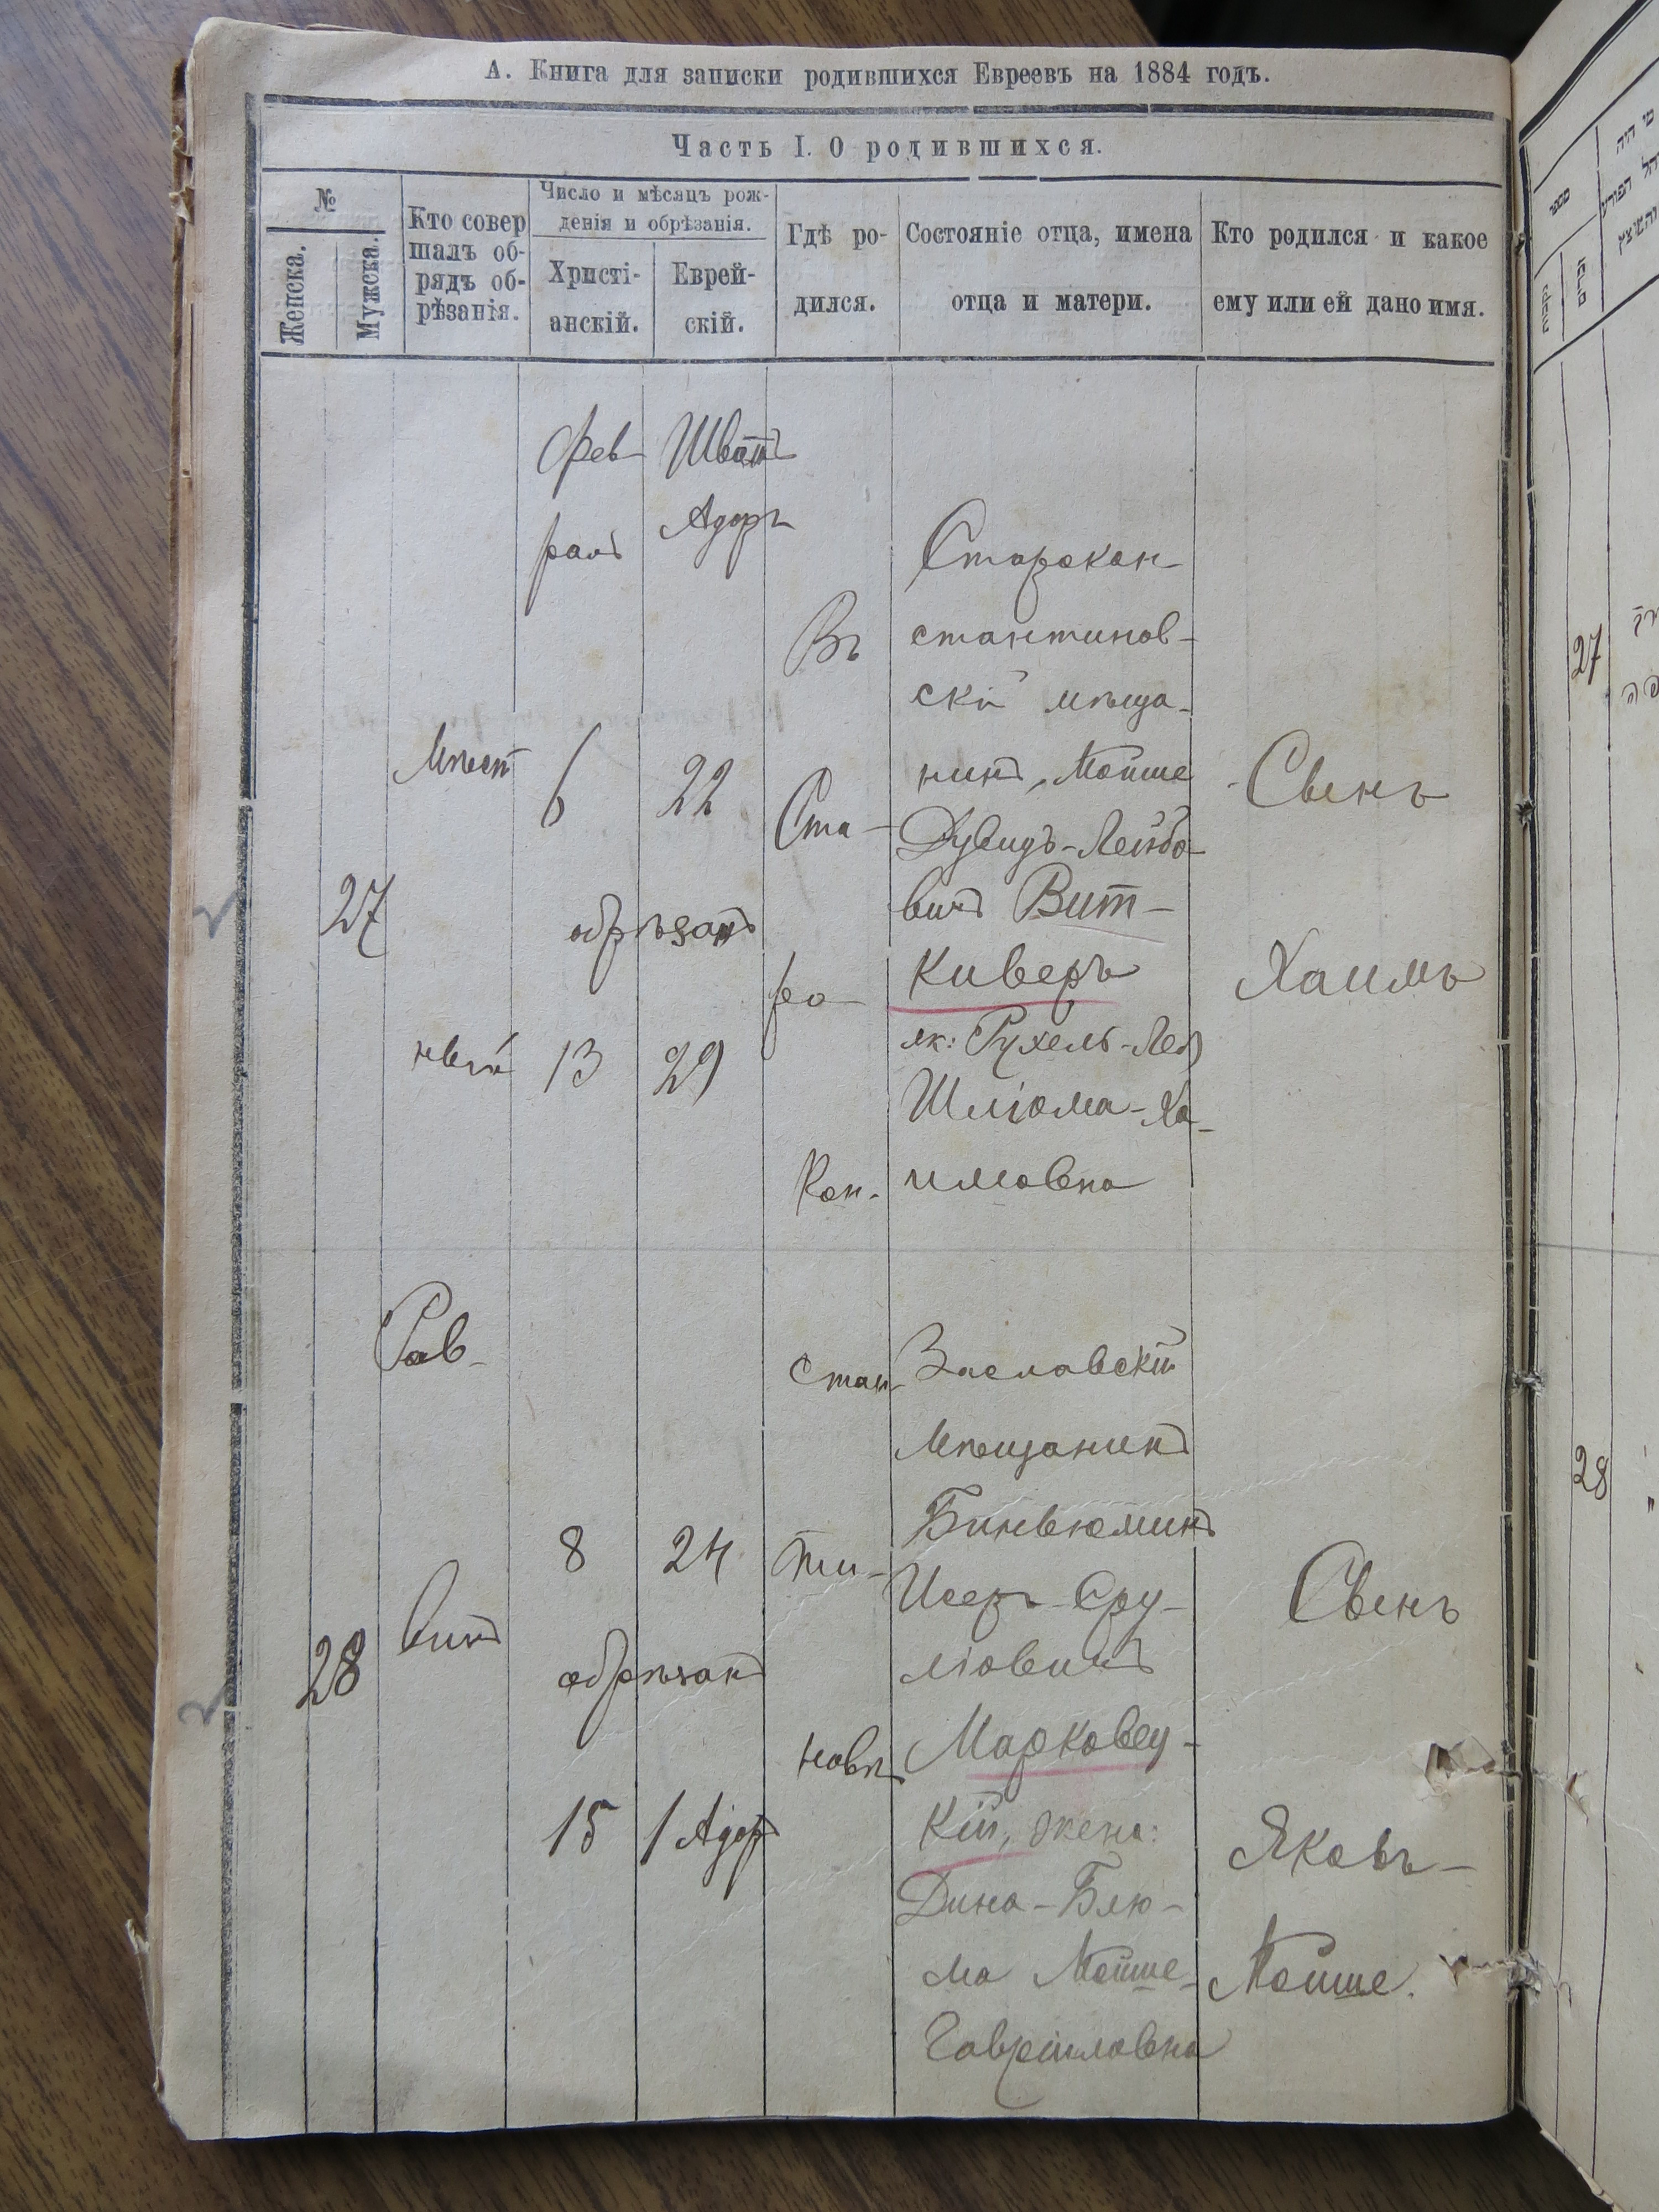 А. Книга для записки родившихся Евреевъ на 1884 годъ.
Часть I. О родившихся.
№
Женска.
Мужска.
Кто совер
шалъ об-
рядъ об-
рѣзанія.
Число и мѣсяцъ рож-
денія и обрѣзанія.
Христі-
анскій.
Еврей-
скій.
Гдѣ ро-
дился.
Состояніе отца, имена
отца и матери.
Кто родился и какое
ему или ей дано имя.
27
Мѣст
ный
фев
раль
6
22
обрѣзанъ
13
29
Шватъ
Адаръ
Въ
Ста-
ро-
Кон-
Старокон-
стантинов-
скій мѣща-
нинъ, Мойше
Дувидъ-Лейбо
вичъ Вит-
киверъ
ж: Рухель-Лея
Шліома-Ха-
имовна
Сынъ
Хаимъ
28
Рав-
винъ
8
24
обрѣзанъ
15
1 Адар
стан-
ти-
новѣ
Заславскій
мѣщанинъ
Биньюминъ
Исеръ-Сру-
ліовичъ
Марковец-
кій, жена:
Дина-Блю-
ма Мойше-
Гаврииловна
Сынъ
Яковъ-
Мойше.
27
28